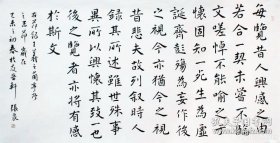 每覽昔人興感之由
若合一契未嘗不臨
文嗟悼不能喻之於
懷固知一死生為虛
誕齊彭殤為妄作後
之視今亦猶今之視
昔悲夫故列敘時人
錄其所述雖世殊事
異所以興懷其致一也
後之覽者亦將有感
於斯文
王羲之蘭亭序
乙未之初春於
軒 張良